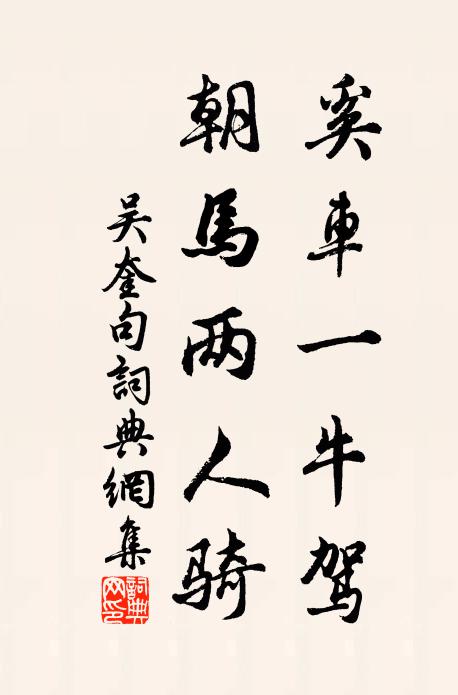 奚車一牛駕
朝馬两人騎
吴奎句詞典網集
詞典网印